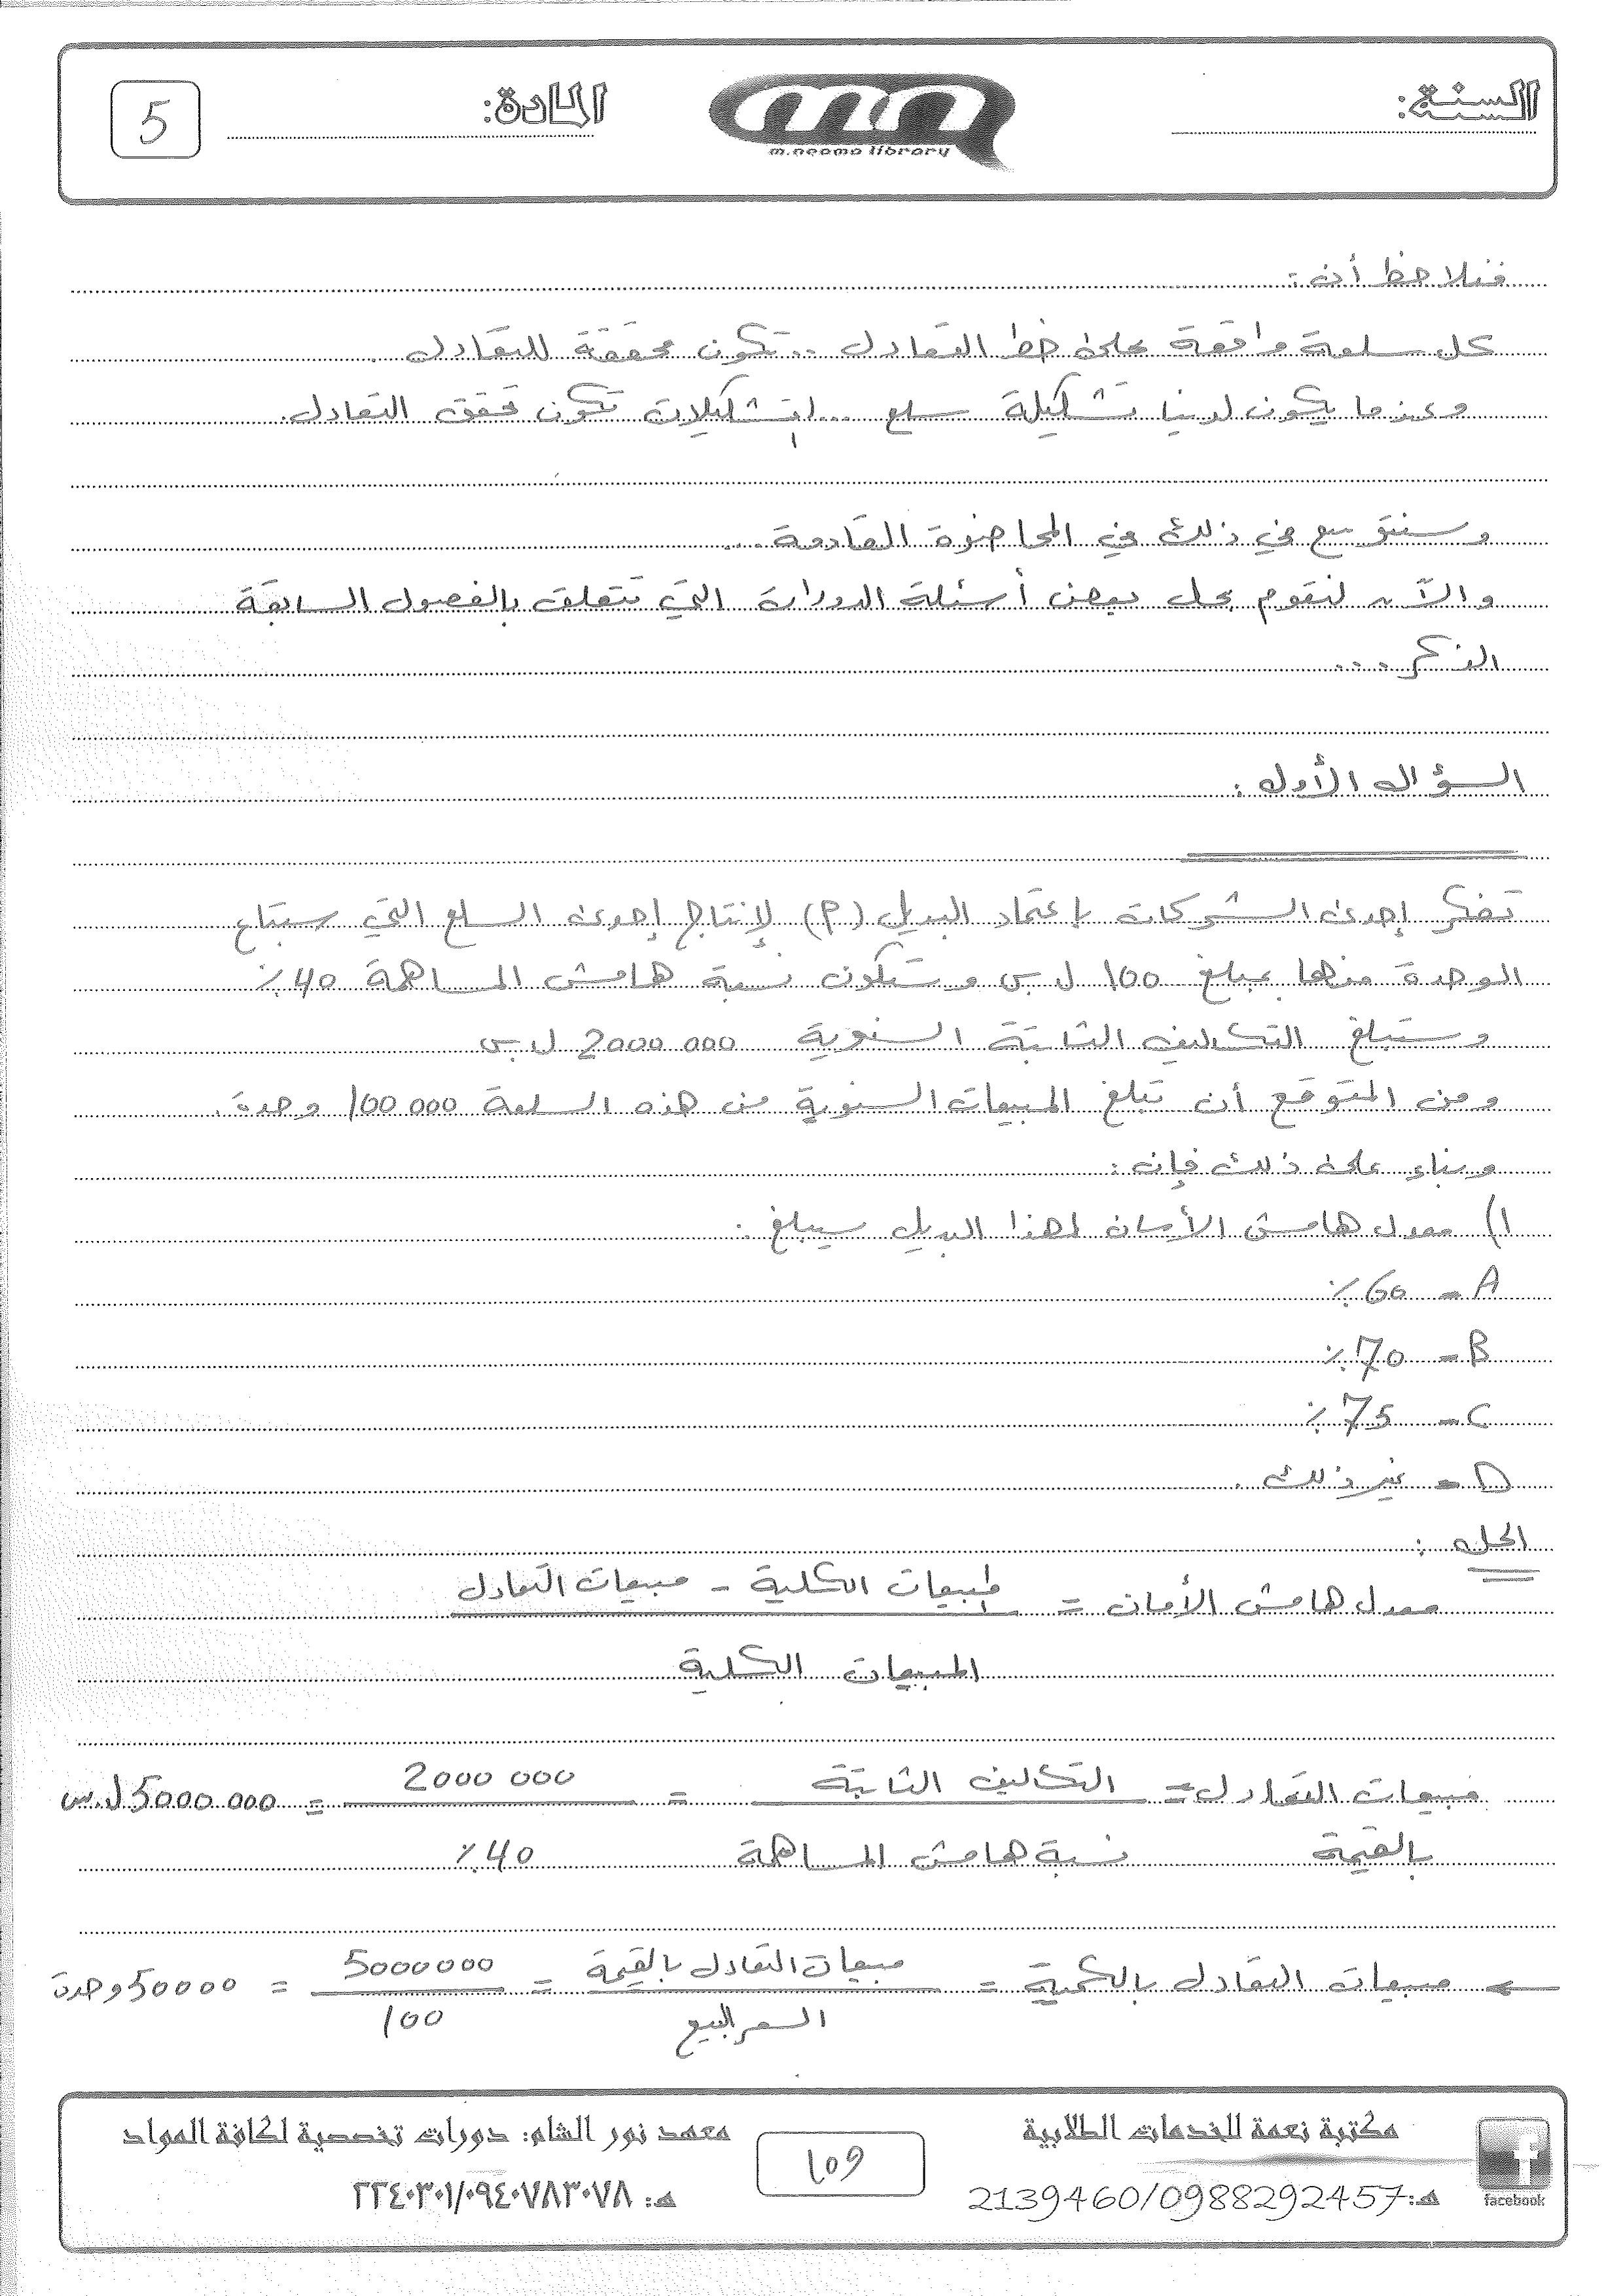 السنة:
m.neama library
المادة:
5
فنلاحظ أن:
كل سلعة واقعة على خط التعادل .. تكون محققة للتعادل.
وعندما يكون لدينا تشكيلة سلع ... التشكيلات تكون تحقق التعادل.
وسنتوسع في ذلك في المحاضرة القادمة...
والآن لنقوم بحل بعض أسئلة الدورات التي تتعلق بالفصول السابقة
الذكر ....
السؤال الأول:
تفكر إحدى الشركات بإعتماد البديل (م) لإنتاج إحدى السلع التي ستباع
الوحدة منها بمبلغ 100 ل.س وستكون نسبة هامش المساهمة 40٪
وستبلغ التكاليف الثابتة السنوية 2000 000 ل.س
ومن المتوقع أن تبلغ المبيعات السنوية من هذه السلعة 100 000 وحدة.
وبناء على ذلك فإن:
1) معدل هامش الأمان لهذا البديل سيبلغ:
A - 60٪
B - 70٪
C - 75٪
D - غير ذلك.
الحل:
معدل هامش الأمان = المبيعات الكلية - مبيعات التعادل
المبيعات الكلية
مبيعات التعادل = التكاليف الثابتة = 2000 000 = 5000 000 ل.س
بالقيمة نسبة هامش المساهمة 40٪
← مبيعات التعادل بالكمية = مبيعات التعادل بالقيمة = 5000000 = 50000 وحدة
السعر البيع 100
مكتبة نعمة للخدمات الطلابية
هـ: 2139460/0988292457
facebook
109
معهد نور الشام: دورات تخصصية لكافة المواد
هـ: ٢٢٤٠٣٠١/٠٩٤٠٧٨٣٠٧٨